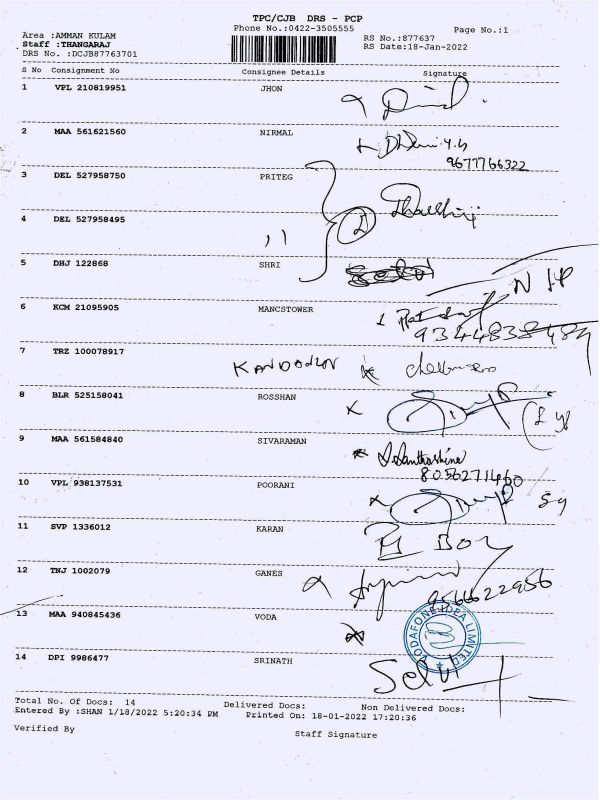 TPC/CJB DRS - PCP
Phone No.:0422-3505555
Page No.:1
Area :AMMAN KULAM
Staff :THANGARAJ
DRS No. :DCJB87763701
RS No.:877637
RS Date:18-Jan-2022
S No Consignment No Consignee Details Signature
1 VPL 210819951 JHON
2 MAA 561621560 NIRMAL
9677766322
3 DEL 527958750 PRITEG
4 DEL 527958495
5 DHJ 122868 SHRI
6 KCM 21095905 MANCSTOWER
9344838484
7 TRZ 100078917
8 BLR 525158041 ROSSHAN
9 MAA 561584840 SIVARAMAN
8056271460
10 VPL 938137531 POORANI
11 SVP 1336012 KARAN
12 TNJ 1002079 GANES
9566622956
13 MAA 940845436 VODA
VODAFONE IDEA LIMITED
14 DPI 9986477 SRINATH
Total No. Of Docs: 14 Delivered Docs: Non Delivered Docs:
Entered By :SHAN 1/18/2022 5:20:34 PM Printed On: 18-01-2022 17:20:36
Verified By Staff Signature